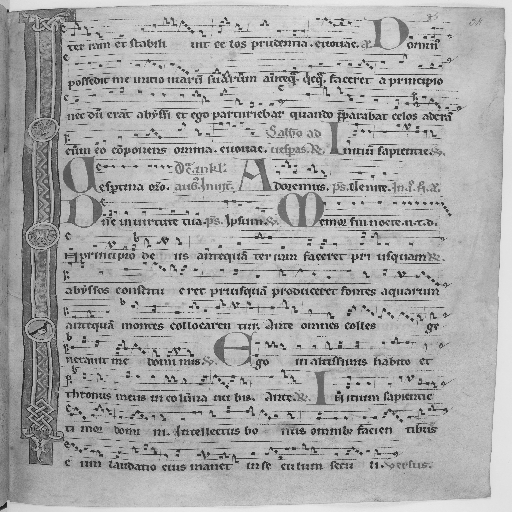 ter ram et stabili uit ce los prudentia. euouae. Dominus
possedit me inicio uiarum suarum anteq̄ qcq̄ faceret a principio
nec dū erat abyssi et ego parturiebar quando p̄parabat celos aderā
cum eo cōponens omnia. euouae. uesp̄as. Sabbo ad Initium sapientie
Uespina oro. Adoremus. ps. Uenite.
Dn̄e in uirtute tua. ps. Ipsum. Memor fui nocte. n. t. d.
In principio de us antequā terram faceret pri usquam
abyssos constitu eret priusquā produceret fontes aquarum
antequā montes collocaren tur. Ante omnes colles ge
nerauit me dominus. Ego in altissimis habito et
thronus meus in colūna nu bis. Ante. Initium sapientie
ti mor domi ni. Intellectus bo nus omnib; facien tibus
e um laudatio eius manet in se culum secu li. Versus.